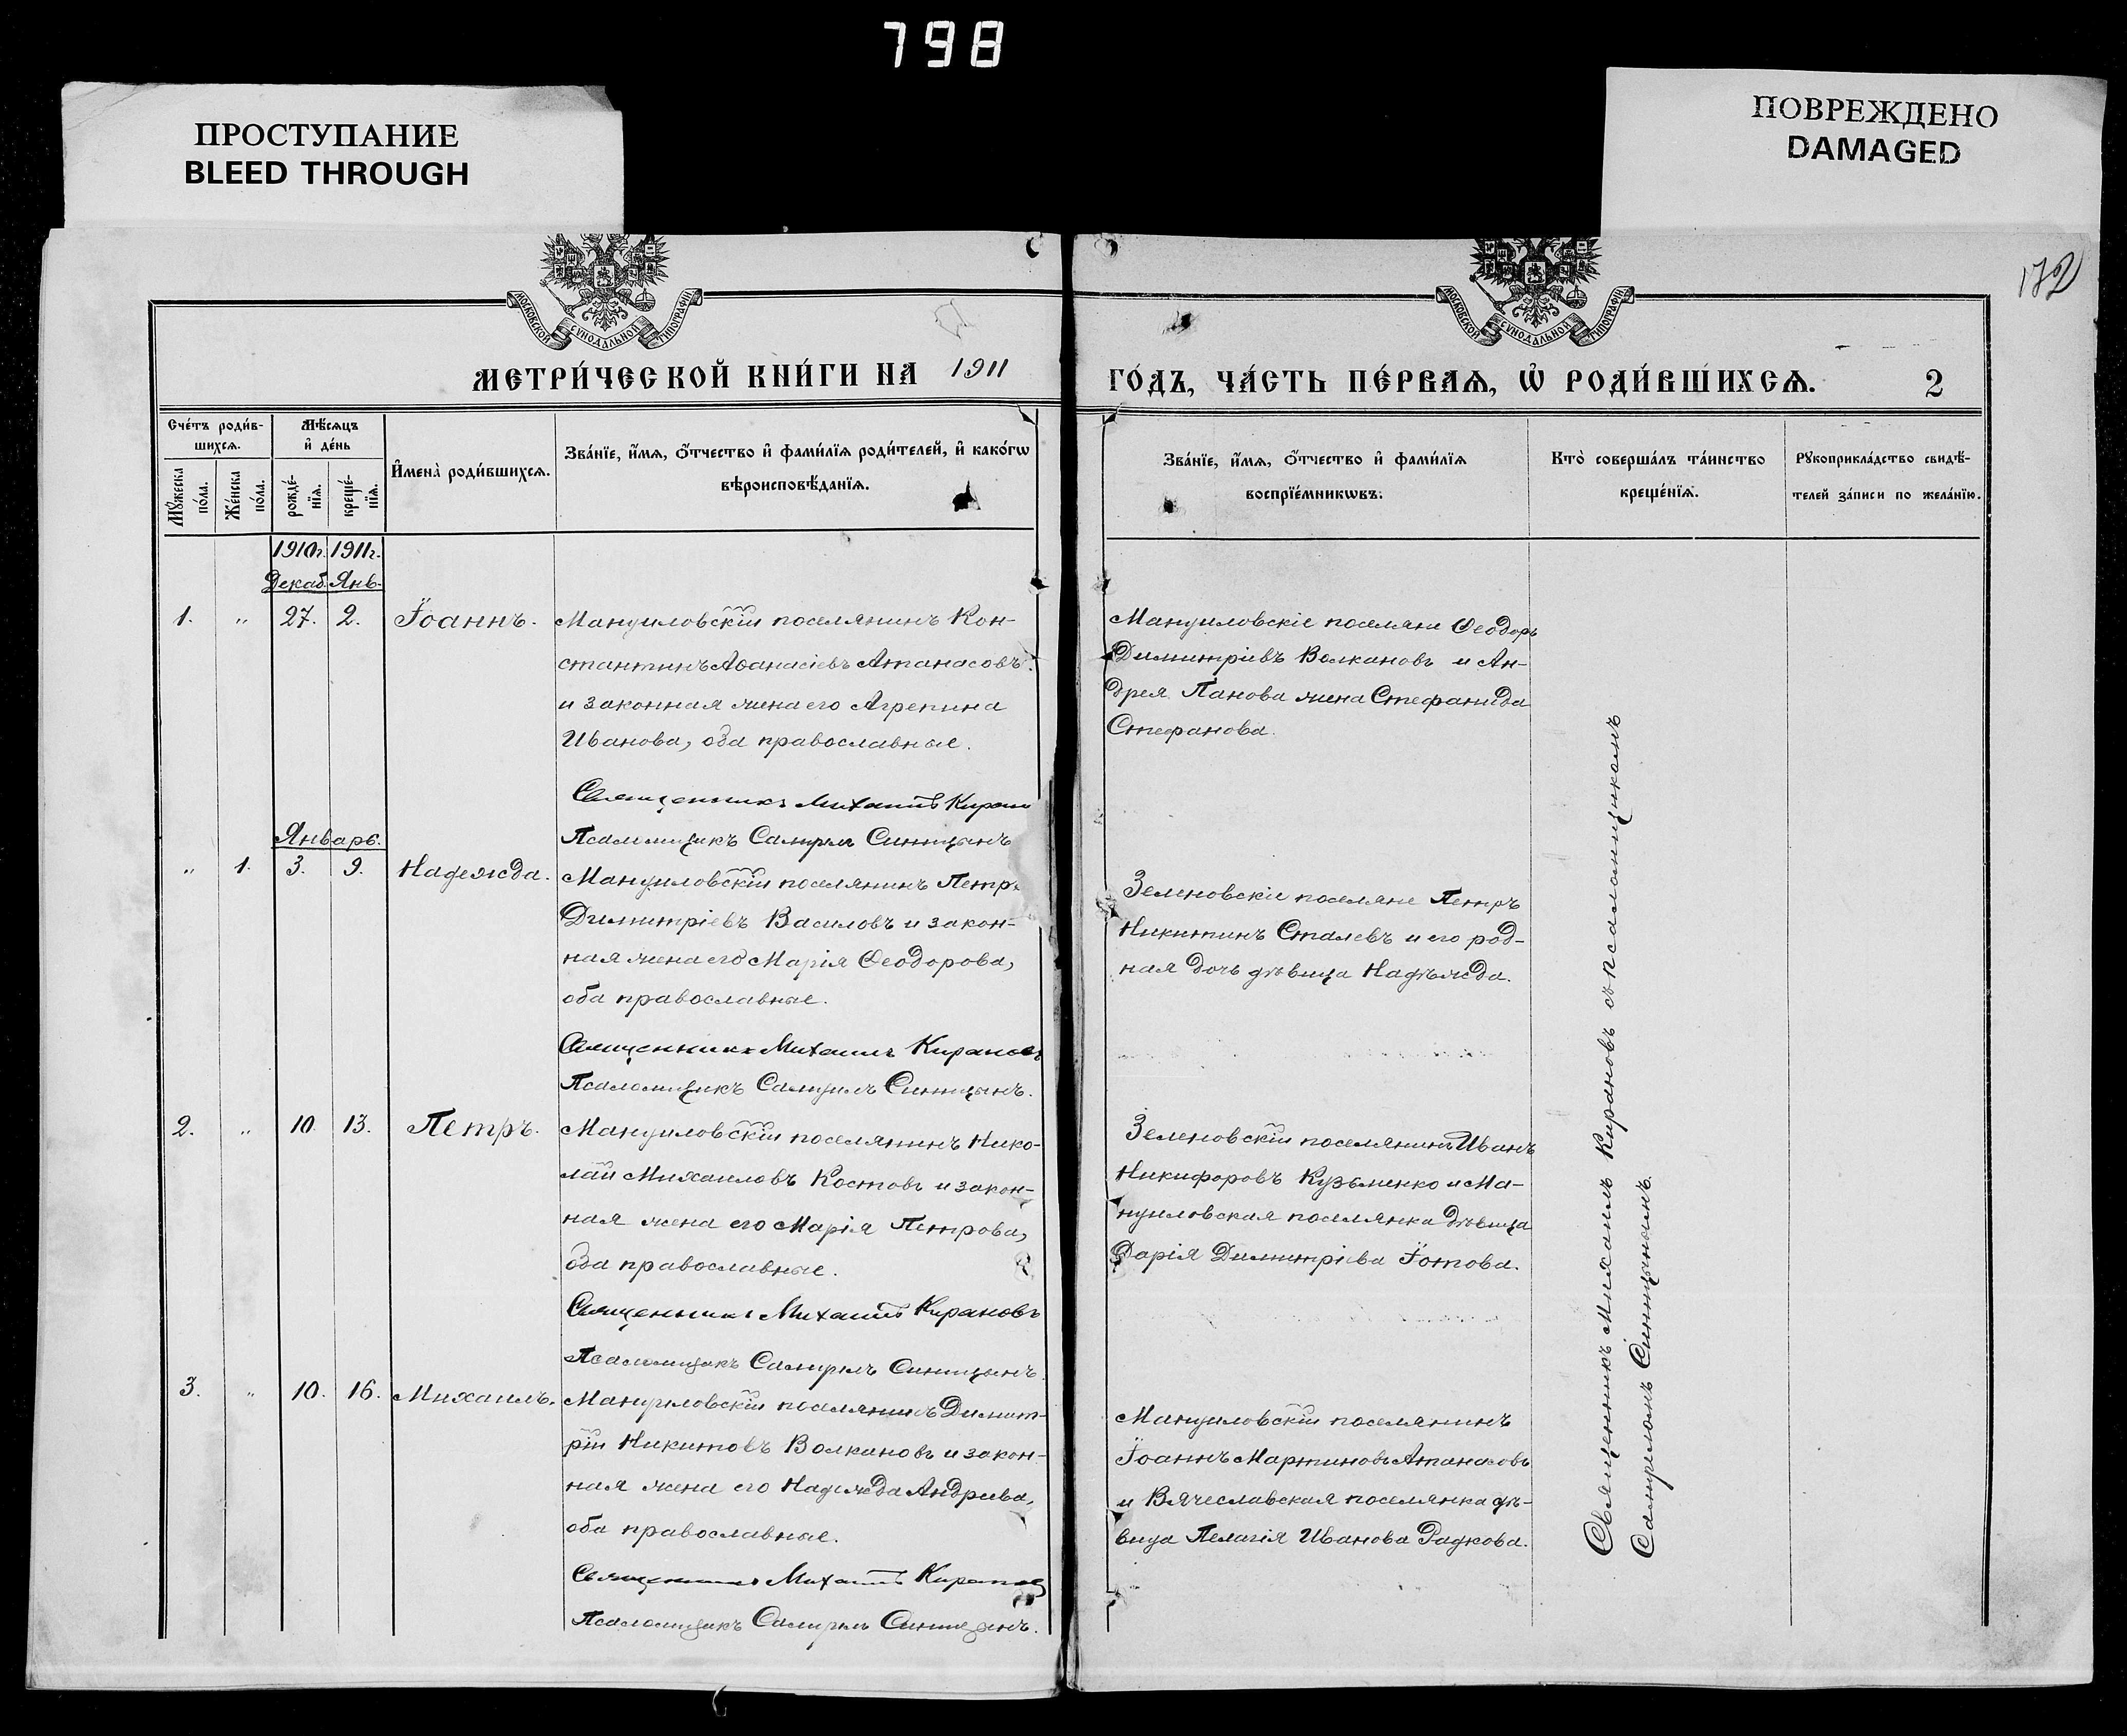 798
ПРОСТУПАНИЕ
BLEED THROUGH
ПОВРЕЖДЕНО
DAMAGED
172
МОСКОВСКОЙ СѴНОДАЛЬНОЙ ТИПОГРАФІИ
МОСКОВСКОЙ СѴНОДАЛЬНОЙ ТИПОГРАФІИ
МЕТРИ́ЧЕСКОЙ КНИ́ГИ НА 1911
ГО́ДЪ, ЧА́СТЬ ПЕ́РВАѦ, Ѡ҆ РОДИ́ВШИХСѦ. 2
Сче́тъ роди́в-
шихсѧ.
Мѣ́сѧцъ
и҆ де́нь
Мꙋ́жеска
по́ла.
Же́нска
по́ла.
рожде́-
нїѧ.
креще́-
нїѧ.
И҆мена̀ роди́вшихсѧ.
Зва́нїе, и҆́мѧ, ѻ҆́тчество и҆ фами́лїѧ роди́телей, и҆ како́гѡ
вѣроисповѣ́данїѧ.
Зва́нїе, и҆́мѧ, ѻ҆́тчество и҆ фами́лїѧ
воспрїе́мникѡвъ.
Кто̀ соверша́лъ та́инство
креще́нїѧ.
Рꙋкоприкла́дство свидѣ́-
телей за́писи по жела́нїю.
1910г. 1911г.
Декаб. Янв.
1. " 27. 2. Іоаннъ.
Мануиловскій поселянинъ Кон-
стантинъ Аѳанасіевъ Атанасовъ
и законная жена его Агрепина
Иванова, оба православные.
Священникъ Михаилъ Киранов
Псаломщикъ Самуилъ Синицынъ
Мануиловскіе поселяне Ѳеодоръ
Димитріевъ Волкановъ и Ан-
дрея Панова жена Стефанида
Стефанова.
Январь.
" 1. 3. 9. Надежда.
Мануиловскій поселянинъ Петръ
Димитріевъ Василовъ и закон-
ная жена его Марія Ѳеодорова,
оба православные.
Священникъ Михаилъ Кирановъ
Псаломщикъ Самуилъ Синицынъ.
Зеленовскіе поселяне Петръ
Никитинъ Сталевъ и его род-
ная дочь дѣвица Надѣжда.
2. " 10. 13. Петръ.
Мануиловскій поселянинъ Нико-
лай Михаиловъ Костовъ и закон-
ная жена его Марія Петрова,
оба православные.
Священникъ Михаилъ Кирановъ
Псаломщикъ Самуилъ Синицынъ.
Зеленовскій поселянинъ Иванъ
Никифоровъ Кузьменко и Ма-
нуиловская поселянка дѣвица
Дарія Димитріева Іотова.
3. " 10. 16. Михаилъ.
Мануиловскій поселянинъ Димит-
рій Никитовъ Волкановъ и закон-
ная жена его Надежда Андреева,
оба православные.
Священникъ Михаилъ Киранов
Псаломщикъ Самуилъ Синицынъ.
Мануиловскій поселянинъ
Іоаннъ Мартиновъ Атанасовъ
и Вячеславская поселянка дѣ-
вица Пелагія Иванова Радкова.
Священникъ Михаилъ Кирановъ съ псаломщикомъ
Самуиломъ Синицынымъ.